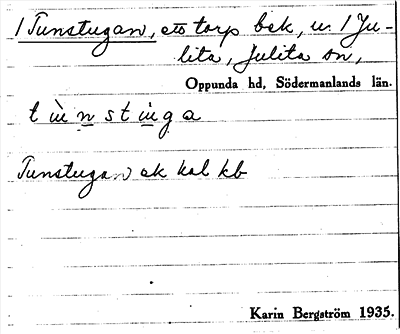 1 Tunstugan, ett torp bek, u. 1 Ju-
lita, Julita sn,
Oppunda hd, Södermanlands län.
Tunstugan ek kal kb
Karin Bergström 1935.